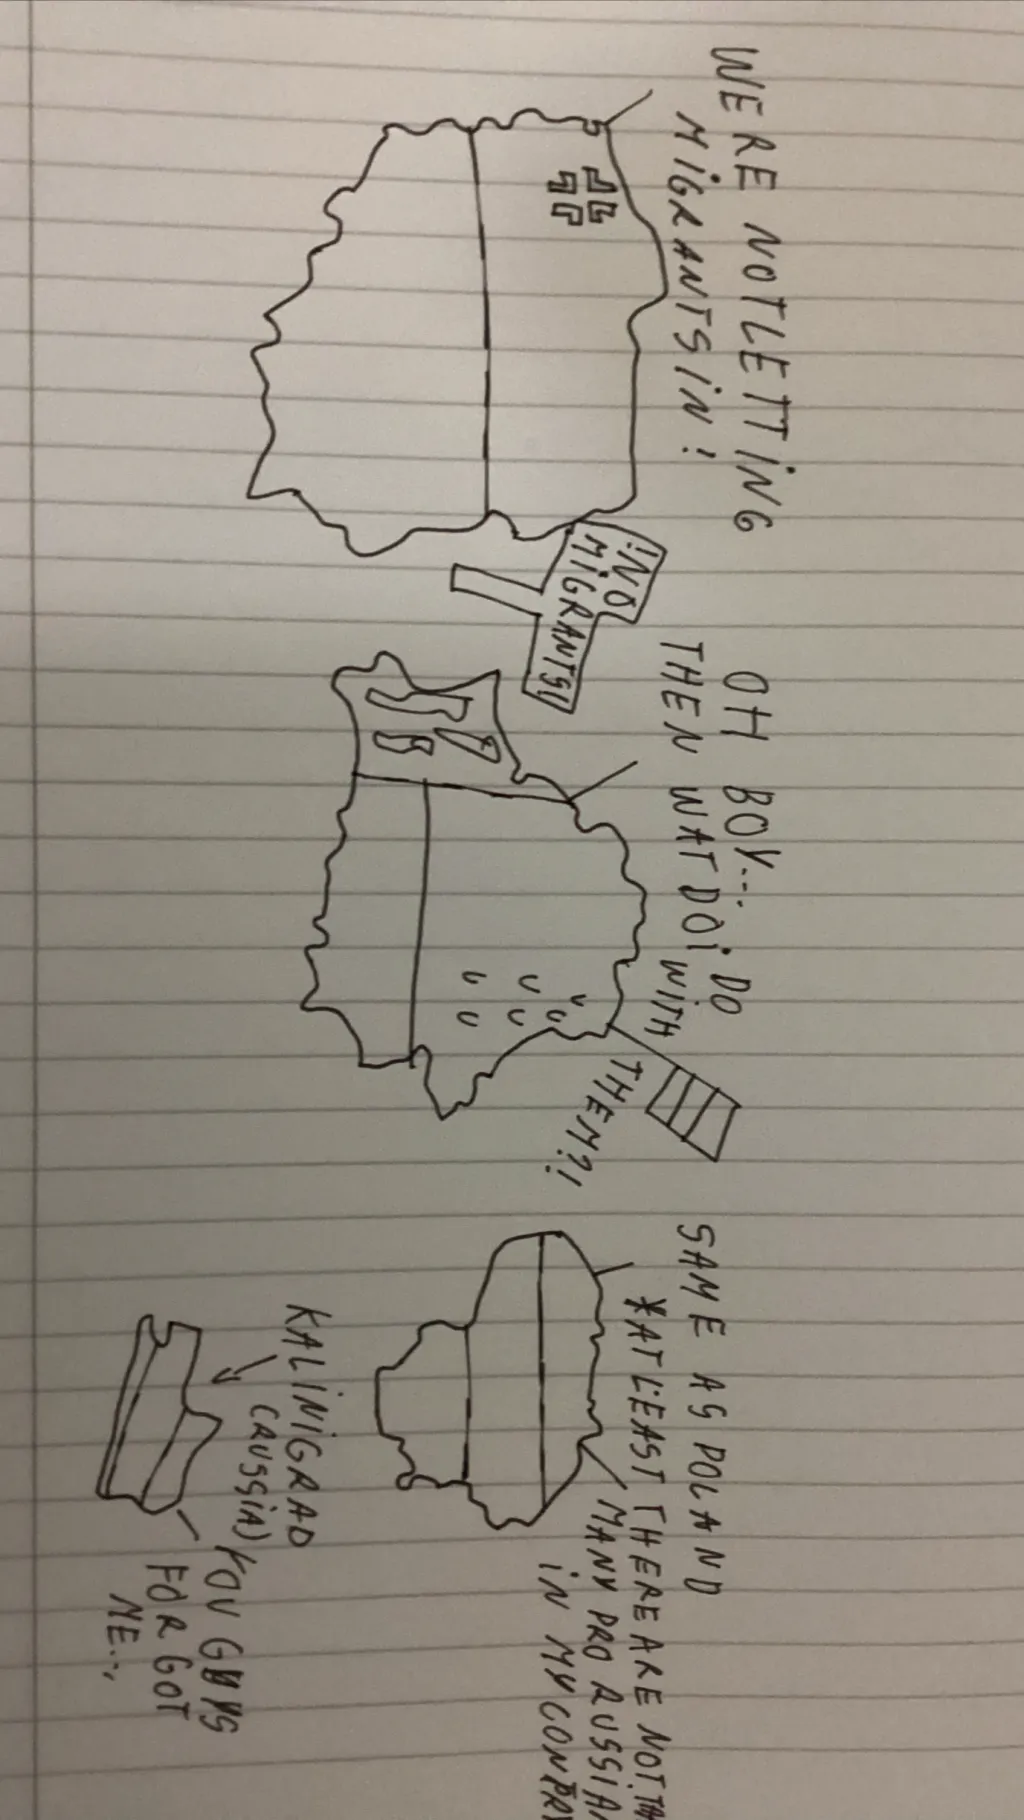 WERE NOTLETTING
MIGRANTSIN!
!NO
MIGRANTS!
OH BOY... DO
THEN WAT DOi WITH
THEM?!
SAME AS POLAND
*AT LEAST THERE ARE NOT
MANY PRO RUSSIA
IN MY
KALINIGRAD
(RUSSIA)
YOU GUYS
FORGOT
ME...